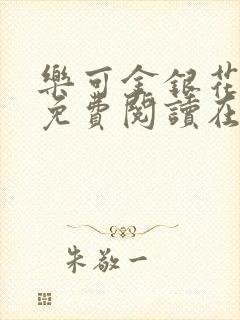 樂可金銀花
免費閱讀在
朱敬一